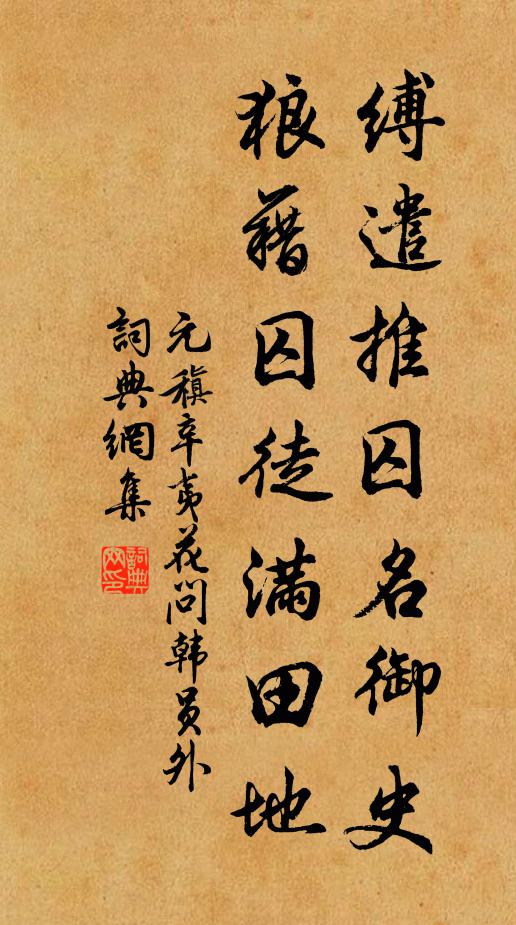 缚遣推囚名御史
狼藉囚徒满田地
元稹辛夷花问韩员外
詞典網集
詞典網印